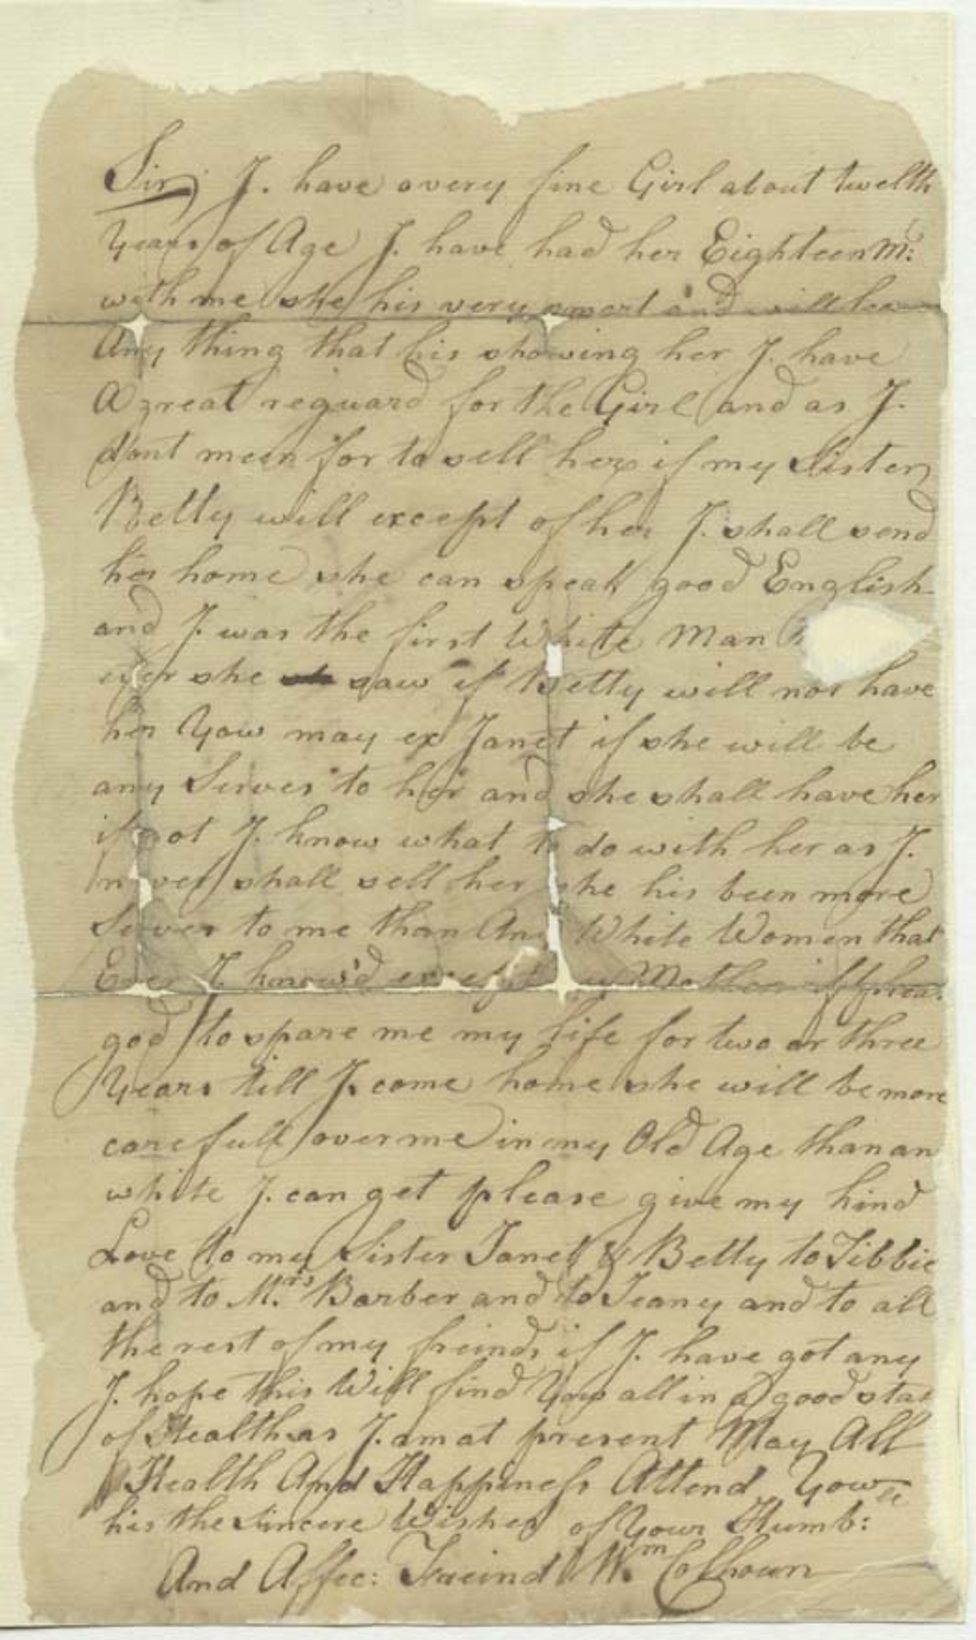 Sir, I. have a very fine Girl about twelth
Years of Age I. have had her Eighteen M:
with me she his very smart and will lea
Any thing that his showing her I. have
A great reguard for the Girl and as I.
dont meen for to sell her if my Sister
Betty will except of her I. shall send
her home she can speak good English
and I. was the first White Man
ever she saw if Betty will not have
her Yow may ex Janet if she will be
any Server to her and she shall have her
if not I. know what to do with her as I.
never shall sell her she his been more
Server to me than Any White Women that
Ever I. know'd except my Mother if pleas
god to spare me my life for two or three
Years till I. come home she will be more
carefull over me in my Old Age than an
white I. can get please give my kind
Love to my Sister Janet & Betty to Tibbie
and to Mrs. Barber and to Jeany and to all
the rest of my freinds if I. have got any
I. hope this Will find Yow all in a good sta
of Health as I. am at present May All
Health And Happiness Attend Yow
his the Sincere Wishes of Your Humb:
And Affec: Freind Wm Colhoun